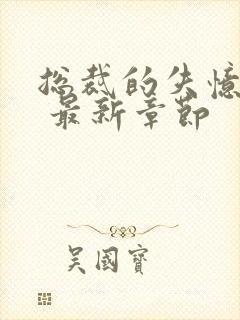 总裁的失憶
最新章節
吴國寶